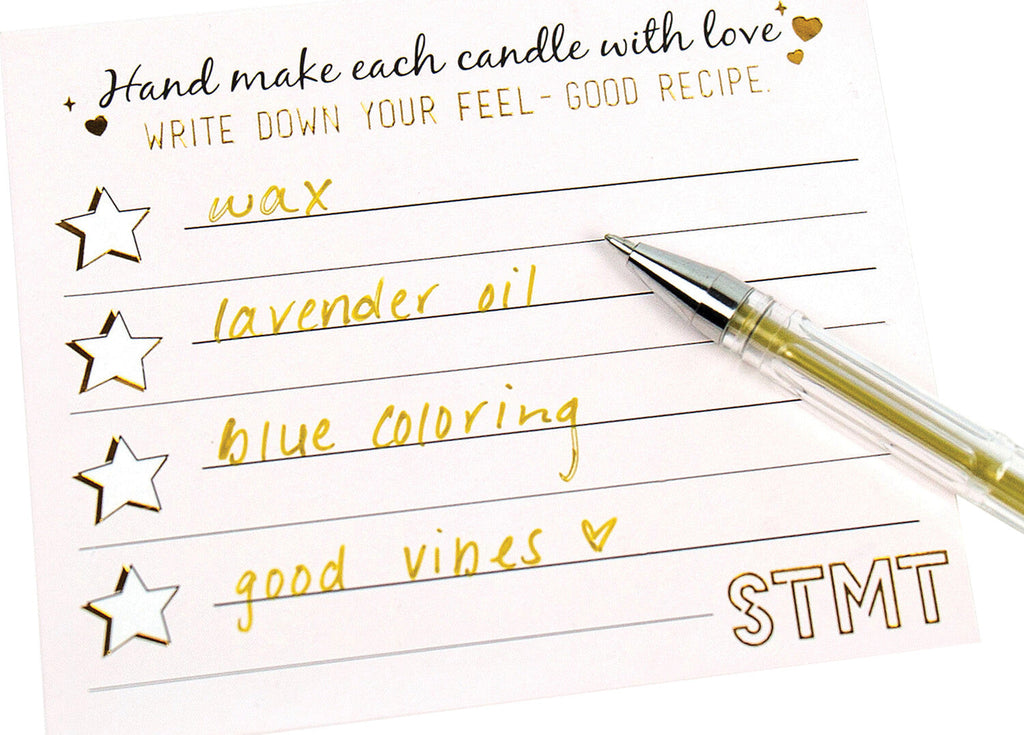 Hand make each candle with love
WRITE DOWN YOUR FEEL-GOOD RECIPE.
wax
lavender oil
blue coloring
good vibes ♡
STMT